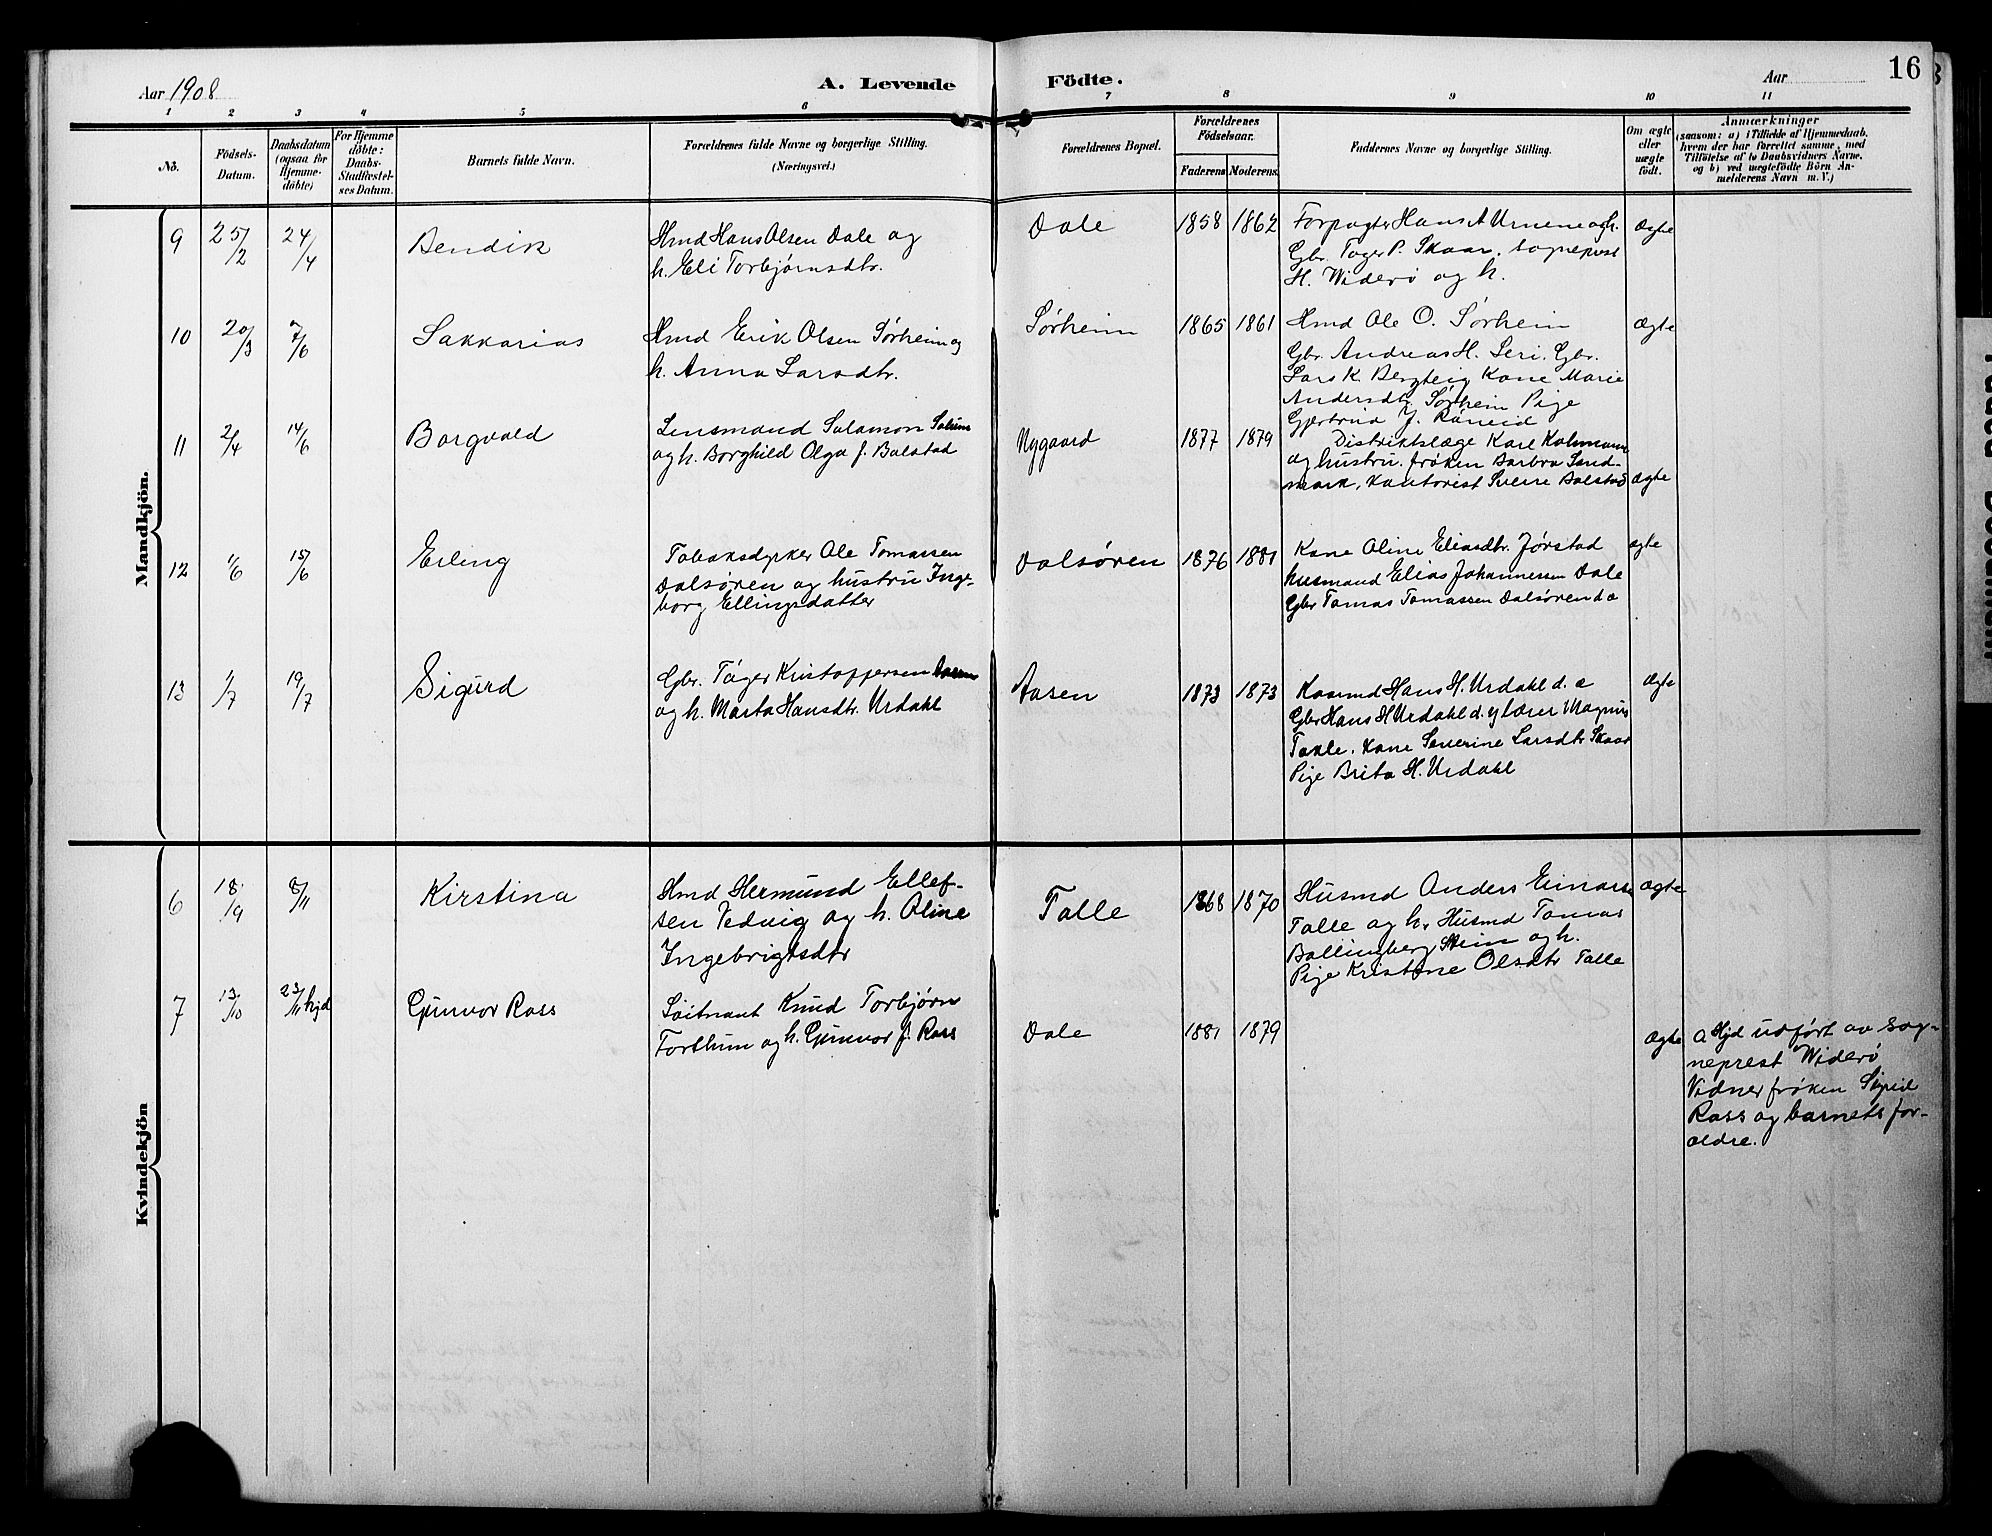 Aar 1908
A. Levende Födte.
Aar
16
1 2 3 4 5 6 7 8 9 10 11
No.
Födsels-
Datum.
Daabsdatum
(ogsaa for
Hjemme-
döbte)
For Hjemme
döbte:
Daabs-
Stadfæstel-
ses Datum.
Barnets fulde Navn.
Forældrenes fulde Navne og borgerlige Stilling.
(Næringsvei.)
Forældrenes Bopæl.
Forældrenes
Födselsaar.
Faderens Moderens
Faddernes Navne og borgerlige Stilling.
Om ægte
eller
uægte
födt.
Anmærkninger
(saasom: a) i Tilfælde af Hjemmedaab,
hvem der har forrettet samme, med
Tilföielse af to Daabsvidners Navne,
og b) ved uægtefödte Börn An-
melderens Navn m. V.)
Mandkjön.
9 25/2 24/4 Bendik
Hmd Hans Olsen Dale og
h. Eli Torbjørnsdtr.
Dale 1858 1862
Forpagter Hans A Urnene og h.
Gbr. Tøger P. Skaar, sogneprest
H. Widerö og h.
Ægte
10 20/3 7/6 Sakkarias
Hmd Erik Olsen Sørheim og
h. Anna Larsdtr.
Sørheim 1865 1861
Hmd Ole O. Sørheim
Gbr. Andreas H. Leri. Gbr.
Lars K. Bergteig Kone Marie
Andersdtr. Sørheim Pige
Gjertrud J. Röneid
Ægte
11 2/4 14/6 Borgvald
Lensmand Salamon
og h. Borghild Olga f. Bolstad
Nygaard 1877 1879
Distriktslæge Karl Kahmann
og hustru. frøken Barbra Sand-
mark, Kantorist Sverre Bolstad
Ægte
12 1/6 15/6 Erling
Tobaksdyrker Ole Tomassen
Dalsøren og hustru Inge-
borg Ellingsdatter
Dalsøren 1876 1881
Kone Oline Eliasdtr. Jørstad
husmand Elias Johannessen Dale
Gbr Tomas Tomassen Dalsøren d æ
Ægte
13 1/7 19/7 Sigurd
Gbr. Tøger Kristoffersen Aasen
og h. Marta Hansdtr. Urdahl
Aasen 1873 1873
Hans H. Urdahl d. æ
Gbr Hans H Urdahl d. y lærer Magnus
Takle. Kone Severine Larsdtr Skaar
Pige Brita H. Urdahl
Ægte
Kvindekjön
6 18/9 8/11 Kirstina
Hmd Hermund Ellef-
sen Vedvig og h. Oline
Ingebrigtsdtr
Talle 1868 1870
Husmd Anders Einarsen
Talle og h. Husmd Tomas
Bollingberg og h.
Pige Kristine Olsdtr Talle
Ægte
7 13/10 23/11 hjd Gunvor Rass
Løitnant Knud Torbjørn
Forthun og h. Gunvor f. Rass
Dale 1881 1879
Ægte
a Hjd udført av Sog-
neprest Widerö
Vidner frøken Sigrid
Rass og barnets for-
ældre.